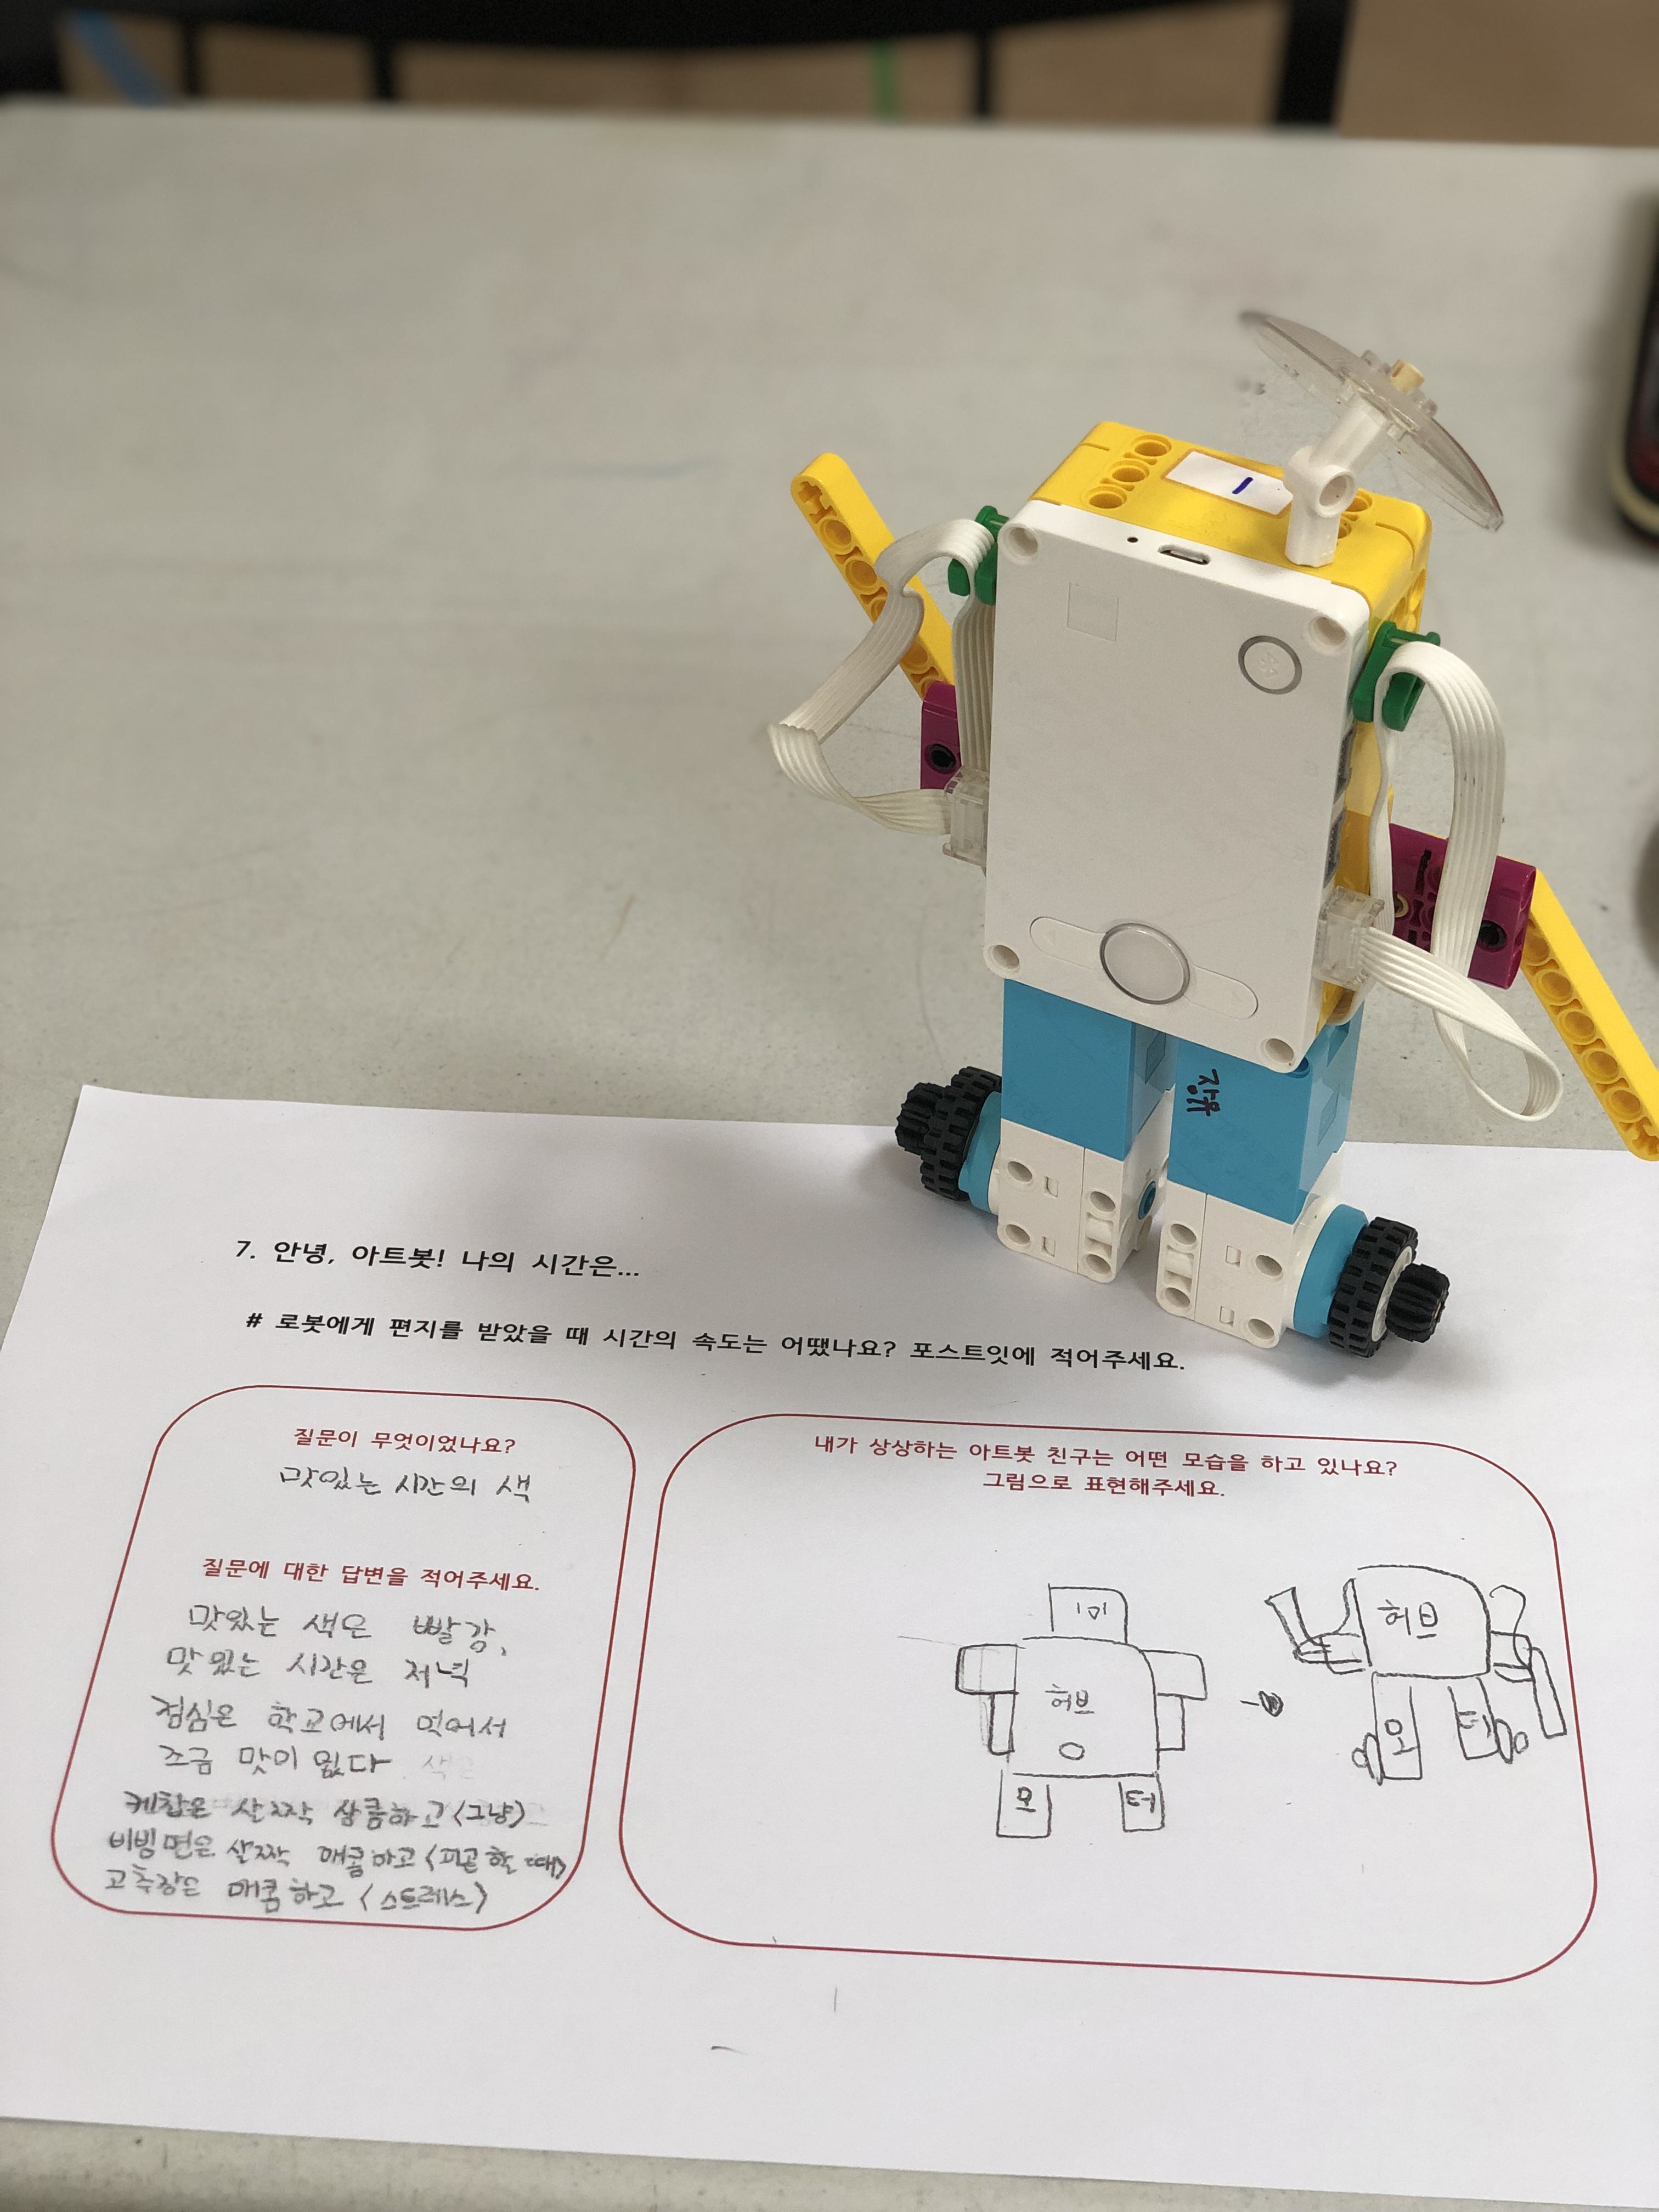 1
장유
7. 안녕, 아트봇! 나의 시간은...
# 로봇에게 편지를 받았을 때 시간의 속도는 어땠나요? 포스트잇에 적어주세요.
질문이 무엇이었나요?
맛있는 시간의 색
질문에 대한 답변을 적어주세요.
맛있는 색은 빨강,
맛있는 시간은 저녁
점심은 학교에서 먹어서
조금 맛이 없다 색은
케찹은 살짝 상큼하고 <그냥>
비빔면은 살짝 매콤하고 <피곤할 때>
고추장은 매콤하고 <스트레스>
내가 상상하는 아트봇 친구는 어떤 모습을 하고 있나요?
그림으로 표현해주세요.
허브
모 터
허브
모 터